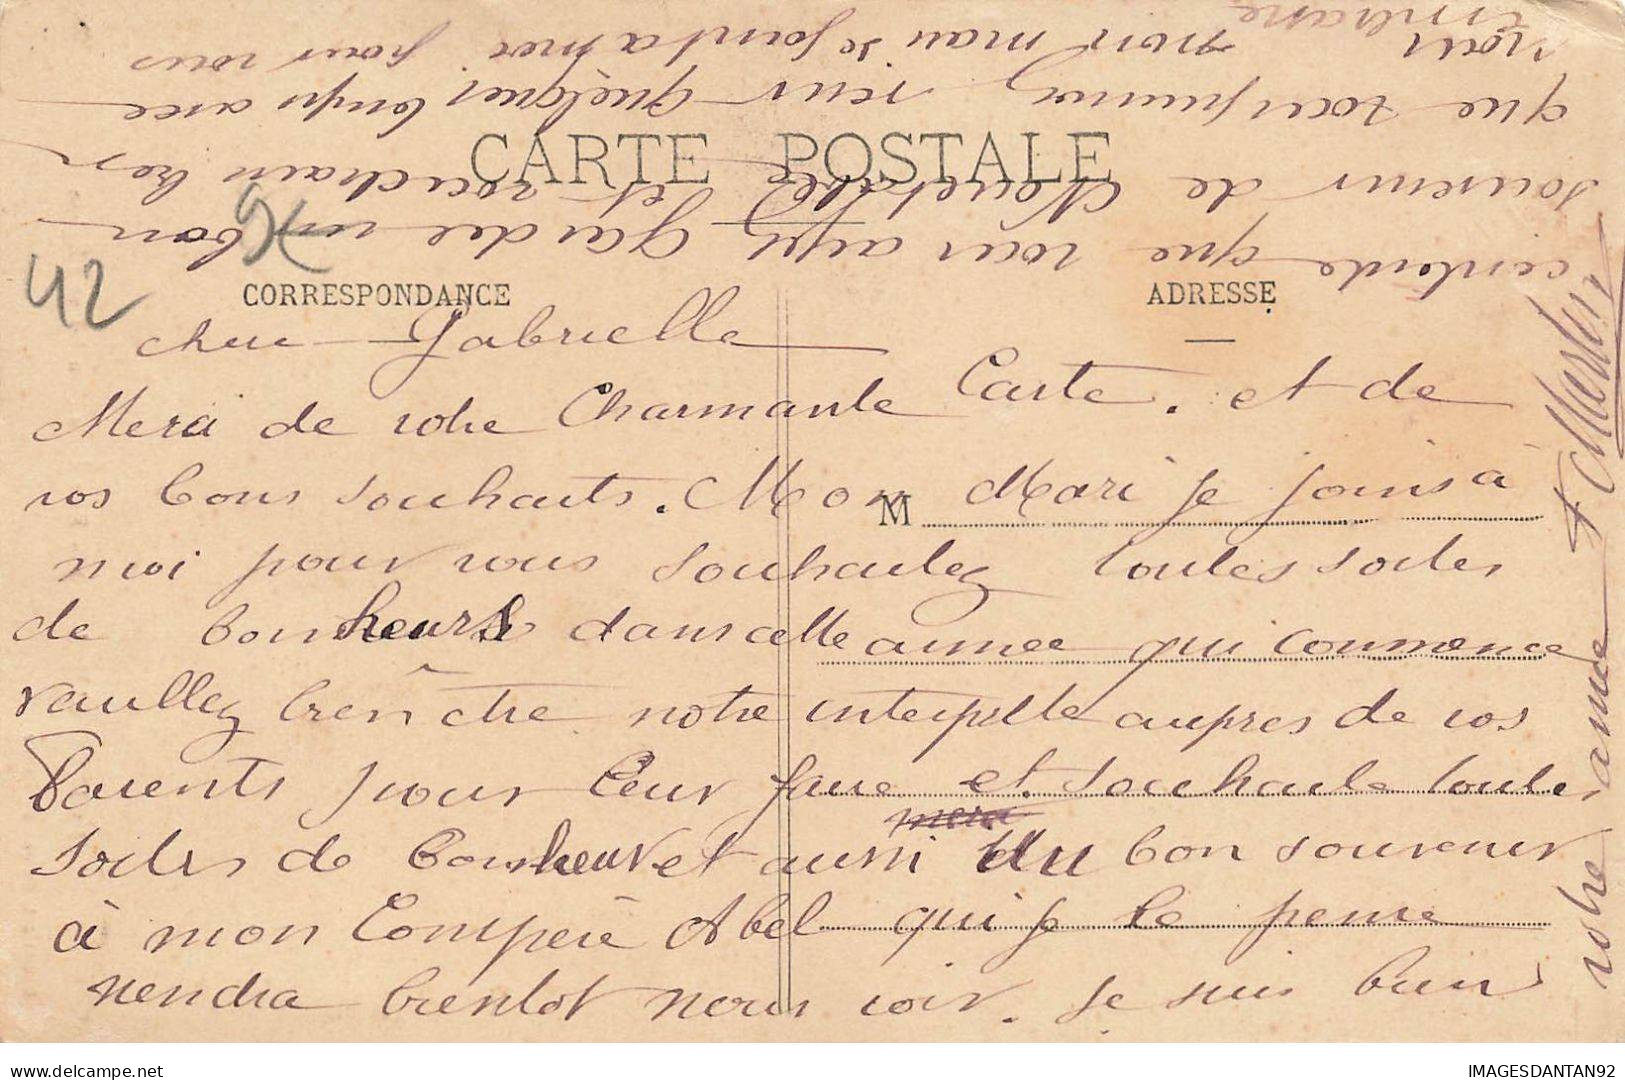 CARTE POSTALE
CORRESPONDANCE
ADRESSE
42
chere Gabrielle
Merci de votre Charmante Carte. et de
vos bons souhaits. Mon Mari se joins à
M
moi pour vous souhaitez toutes sortes
de bonheurs dans cette annee qui commence
vaullez bien être notre interprette aupres de vos
Parents pour leur faire et souhaite toute
sortes de bonheur et aussi du bon souvenir
à mon Compère Abel qui je le pense
viendra bientot nous voir. Je suis bien
contente que vous ayez garder un bon
souvenir de Noyelles et
que vous puissiez venir quelques temps avec
nous mon mari se joint a moi pour vous
Embrasse
votre amie
IMAGESDANTAN92